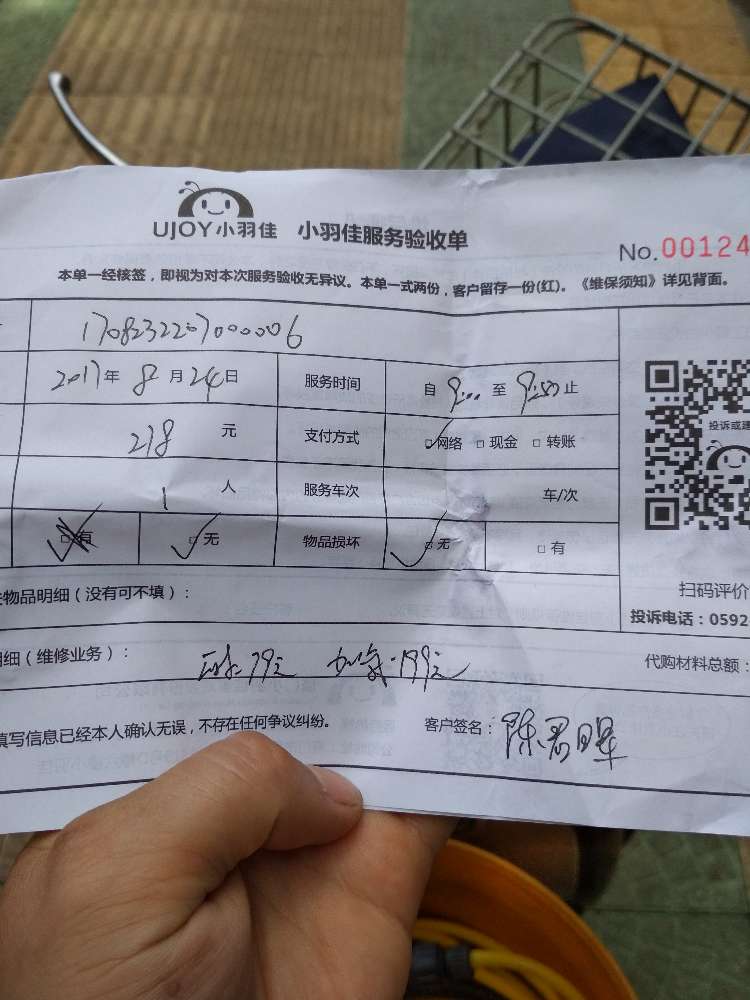 UJOY小羽佳 小羽佳服务验收单
No.00124
本单一经核签，即视为对本次服务验收无异议。本单一式两份，客户留存一份(红)。《维保须知》详见背面。
2017年8月24日 服务时间 自9:00至9:50止
218元 支付方式 网络 现金 转账
投诉或建
1人 服务车次 车/次
有 无 物品损坏 无 有
扫码评价
物品明细（没有可不填）：
投诉电话：0592
明细（维修业务）： 79元 加氟:199元 代购材料总额：
填写信息已经本人确认无误，不存在任何争议纠纷。 客户签名：陈君晖